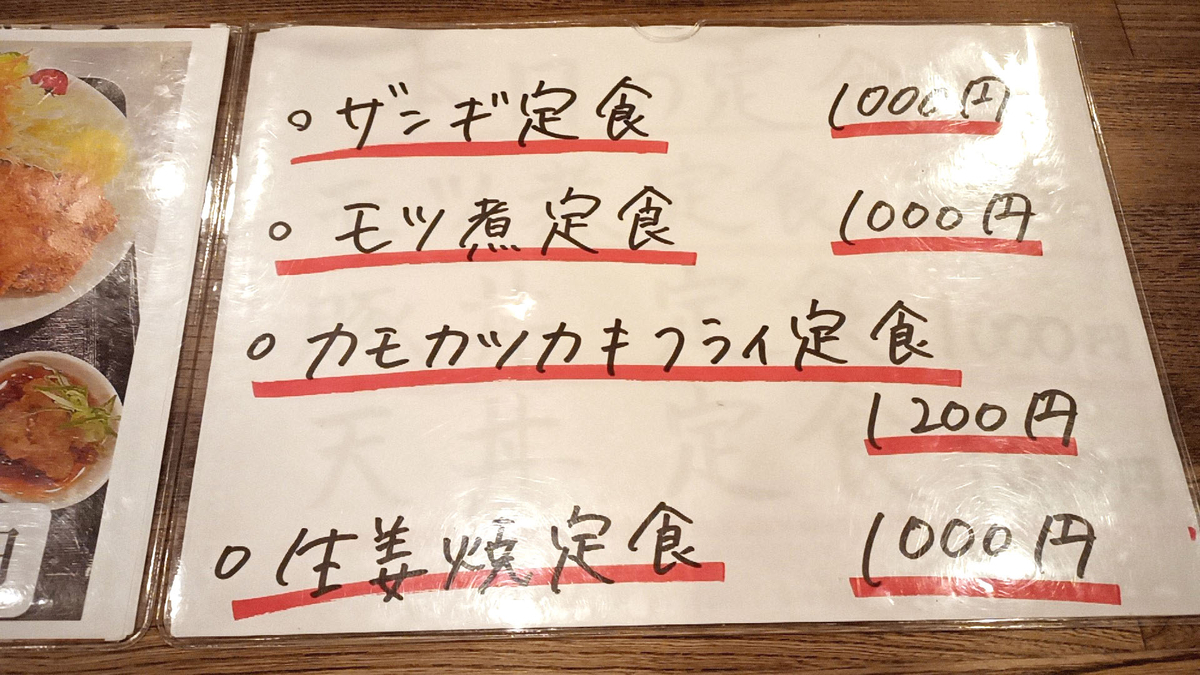 ○ ザンギ定食 1000円
○ モツ煮定食 1000円
○ カモカツカキフライ定食
1200円
○ 生姜焼定食 1000円